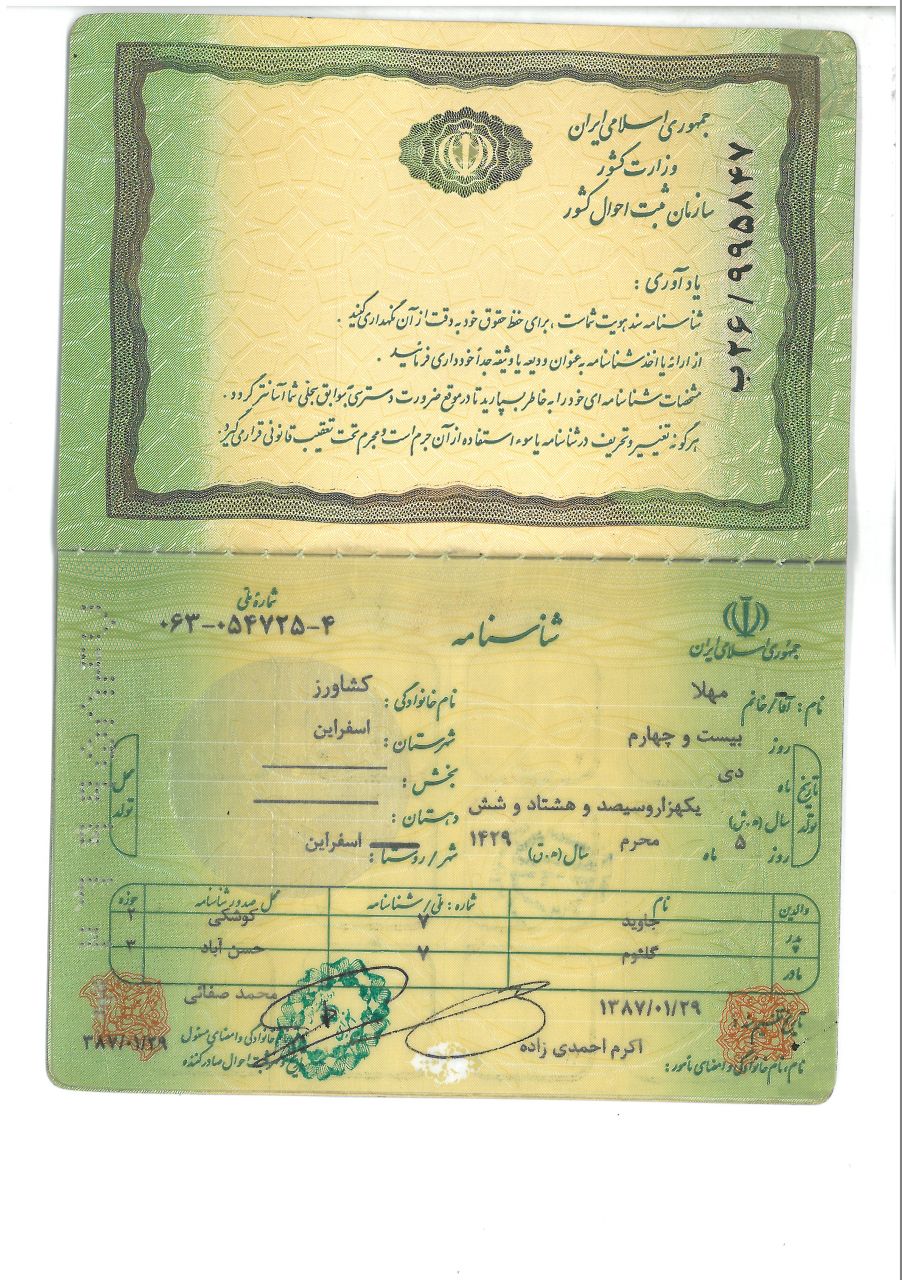 جمهوری اسلامی ایران
وزارت کشور
سازمان ثبت احوال کشور
ب۲۶/۹۹۵۸۴۷
یادآوری :
شناسنامه سند هویت شماست ، برای حفظ حقوق خود به دقت از آن نگهداری کنید .
از ارائه یا اخذ شناسنامه به عنوان ودیعه یا وثیقه جداً خودداری فرمائید .
مشخصات شناسنامه ای خود را به خاطر بسپارید تا در موقع ضرورت دسترسی به سوابق سجلی شما آسانتر گردد .
هرگونه تغییر و تحریف در شناسنامه یا سوء استفاده از آن جرم است و مجرم تحت تعقیب قانونی قرار می گیرد .
جمهوری اسلامی ایران
شناسنامه
شماره ملی
۰۶۳-۰۵۴۷۲۵-۴
نام : آقا/خانم مهلا
نام خانوادگی : کشاورز
تاریخ تولد
روز بیست و چهارم
ماه دی
سال (ه.ش) یکهزاروسیصد و هشتاد و شش
روز ۵ ماه محرم سال (ه.ق) ۱۴۲۹
محل تولد
شهرستان : اسفراین
بخش :
دهستان :
شهر/روستا : اسفراین
والدین نام شماره : ملی/شناسنامه محل صدور شناسنامه حوزه
پدر جاوید ۷ کوشکی ۲
مادر گلثوم ۷ حسن آباد ۳
تاریخ تنظیم سند : ۱۳۸۷/۰۱/۲۹
نام، نام خانوادگی و امضای مأمور : اکرم احمدی زاده
محمد صفائی
نام خانوادگی و امضای مسئول
ثبت احوال صادرکننده
۳۸۷/۰۱/۲۹